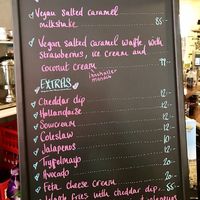 Vegan salted caramel
milkshake 85-
Vegan salted caramel waffle with
strawberries, ice cream and
coconut cream 99
innholder
mandler
EXTRAS
Cheddar dip 12-
Hollandaise 12-
Sourcream 12-
Coleslaw 12-
Jalapenos 12-
Trøffelmajo 12-
Avocado
Feta cheese cream
fries with cheddar dip,